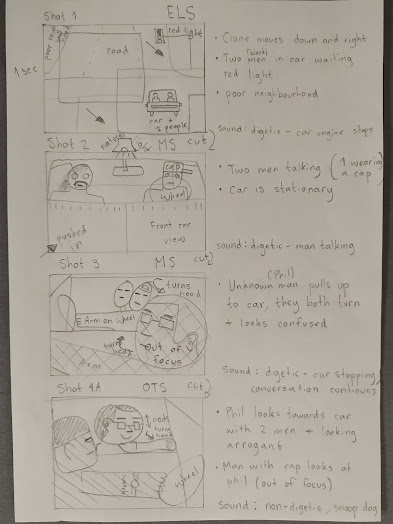 Shot 1
ELS
1 SEC
poor neigh
road
red light
car +
2 people
• Crane moves down and right
(black)
• Two men in car waiting
red light
• poor neighbourhood
sound: digetic - car engine stops
Shot 2
MS
cut
natural
cap
Wheel
Front car
view
pushed
in
• Two men talking (1 wearing
a cap)
• Car is stationary
sound: digetic - man talking
Shot 3
MS
cut
turns
head
Arm on wheel
turns
head
Out of
focus
(Phil)
• Unknown man pulls up
to car, they both turn
+ looks confused
sound: digetic - car stopping,
conversation continues
Shot 4A
OTS
cut
nods
turns
head
wheel
• Phil looks towards car
with 2 men + looking
arrogant
• Man with cap looks at
phil (out of focus)
Sound: non-digetic, snoop dog